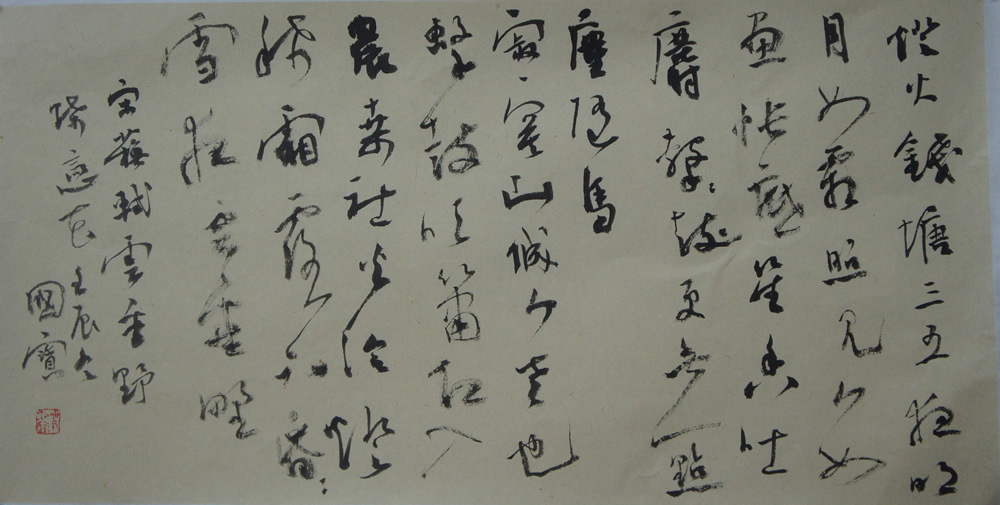 燈火錢塘三五夜明
月如霜照見人如
畫帳底笙香吐
麝鼓更無一點
塵隨馬
寂寞山城人老也
擊鼓吹簫却入
農桑社火冷燈
稀霜露下昏昏
雪意雲垂野
宋蘇軾雲垂野
蝶戀花壬辰冬
國寶